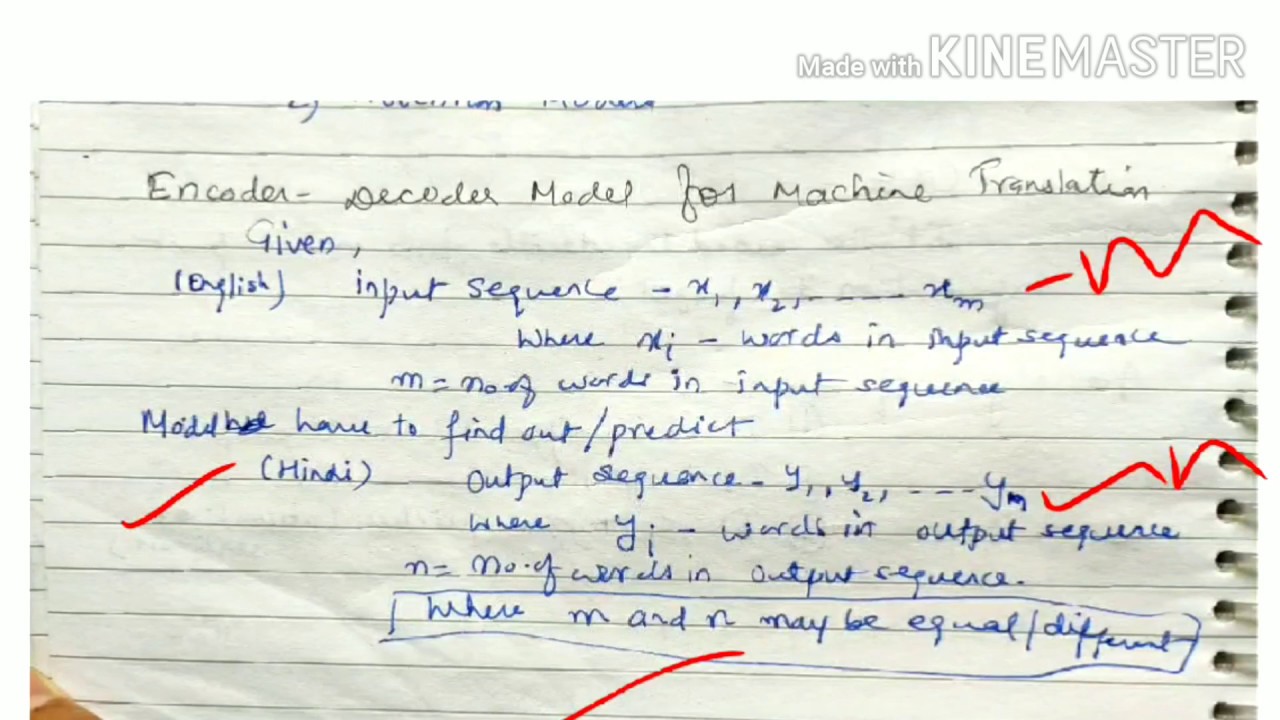 Made with KINEMASTER
Encoder - Decoder Model for Machine Translation
Given,
(English) input sequence - x₁, x₂, ------ xₘ
Where xᵢ - words in input sequence
m = no of words in input sequence
Model have to find out/predict
(Hindi) Output sequence - y₁, y₂, ---- yₙ
Where yᵢ - words in output sequence
n = No. of words in output sequence.
Where m and n may be equal/different